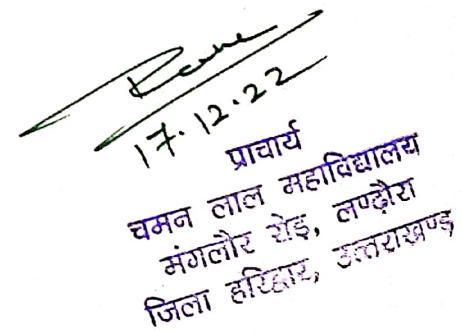 17.12.22
प्राचार्य
चमन लाल महाविद्यालय
मंगलौर रोड़, लण्ढौरा
जिला हरिद्वार, उत्तराखण्ड